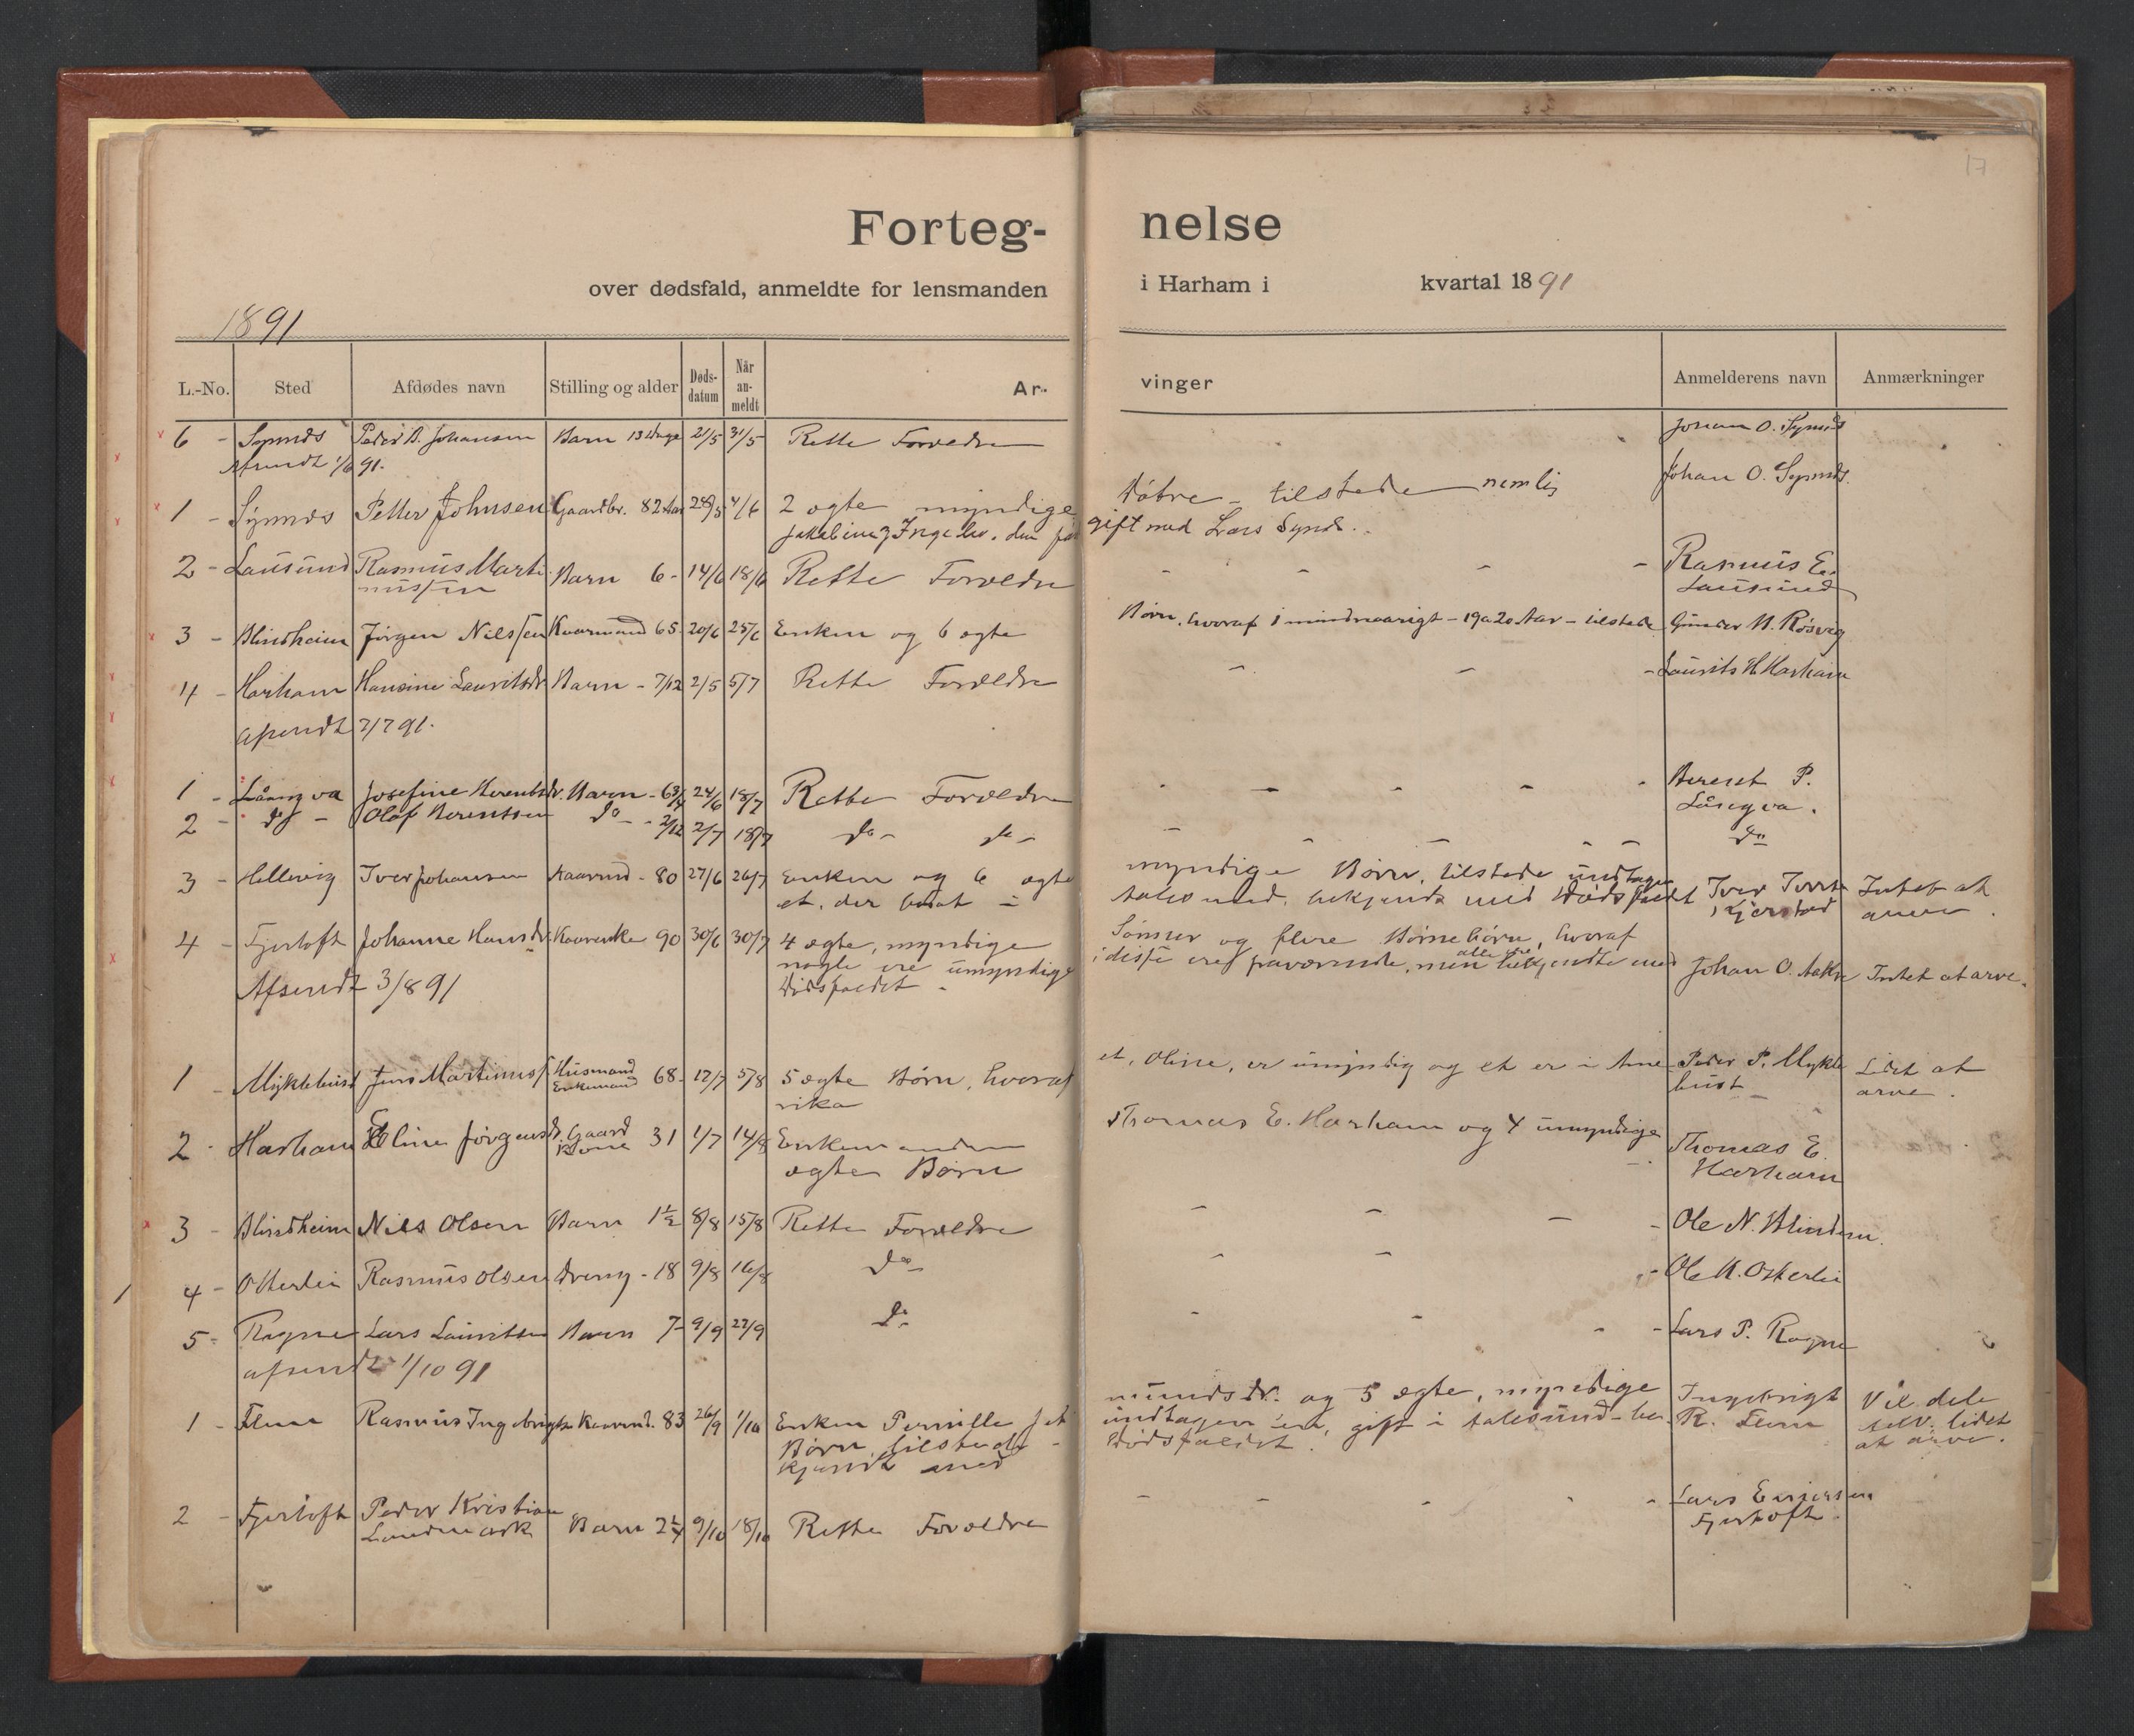 17
Forteg-nelse
over dødsfald, anmeldte for lensmanden i Harham i kvartal 1891
1891
L.-No. Sted Afdødes navn Stilling og alder Døds-datum Når an-meldt Ar-vinger Anmelderens navn Anmærkninger
6 - Synnes Peder B. Johansen Barn 13 Dage 21/5 31/5 Rette Forældre Johan O. Synnes
Afsendt 1/6 91.
1 - Synnes Petter Johnsen Gaardbr. 82 Aar 28/5 4/6 2 ægte myndige Døtre - tilstede nemlig Johan O. Synnes.
gift med Lars Synes.
2 - Lausund Rasmus Marti Barn 6 - 14/6 18/6 Rette Forældre - - - - Rasmus E.
nussen Lausund
3 - Blindheim Jørgen Nilssen Kaarmand 65 20/6 25/6 Enken og 6 ægte Børn, hvoraf 1 mindreaarigt - 19 a 20 Aar - tilstede Gunder M. Røsvig
4 - Harham Hansine Lauritsdr Barn - 7/12 2/5 5/7 Rette Forældre - - - Laurits H. Harham
afsendt 7/7 91.
1 - Långva Josefine Berentsdr. Barn - 6 3/4 24/6 18/7 Rette Forældre - - - - - Berent P.
Långva.
2 - do - Olaf Berentsen do - - 2/12 2/7 18/7 do - do - - - - - do
3 - Hellevig Iver Johansen Kaarmd - 80 27/6 26/7 Enken og 6 ægte myndige Børn, tilstede undtagen Iver Iverse Intet at
et, der boat i Aalesund, bekjendt med Dødsfaldet Kjerstad arve.
4 - Fjertoft Johanne Hansdr. Kaarenke 90 30/6 30/7 4 ægte, myndige Sønner og flere Børnebørn, hvoraf
nogle ere umyndige, i disse ere fraværende, men alle ere bekjendte med Johan O. Aakre Intet at arve.
Dødsfaldet -
Afsendt 3/8 91
1 - Myklebust Jens Martinuss Husmand Enkemand 68 - 12/7 5/8 5 ægte Børn, hvoraf et, Oline, er umyndig og et er i Ame Peder P. Mykle Lidt at
rika bust - arve.
2 - Harham Eline Jørgensdr. Gaard Kone 31 1/7 14/8 Enkemanden Thomas E. Harham og 4 umyndige Thomas E.
ægte Børn - Harham
3 - Blindheim Nils Olsen Barn 1 1/2 8/8 15/8 Rette Forældre - - - - Ole N. Blindem.
4 - Otterlei Rasmus Olsen dreng - 18 9/8 16/8 do - - - Ole K. Otterlei
5 - Rogne Lars Lauritsen Barn 7 - 9/9 22/9 do - - - - Lars P. Rogne
afsendt 1/10 91
1 - Flem Rasmus Ingebrigts Kaarmd. 83 26/9 1/10 Enken Pernille Jetmundsdr. og 5 ægte, myndige Ingebrigt Vil dele
Børn, tilstede - undtagen een, gift i Aalesund - be R. Flem selv. lidet
kjendt med Dødsfaldet. at arve.
2 - Fjertoft Peder Kristian Barn 2 1/4 9/10 18/10 Rette Forældre - - - - - Lars Einersen
Landmark Fjertoft.